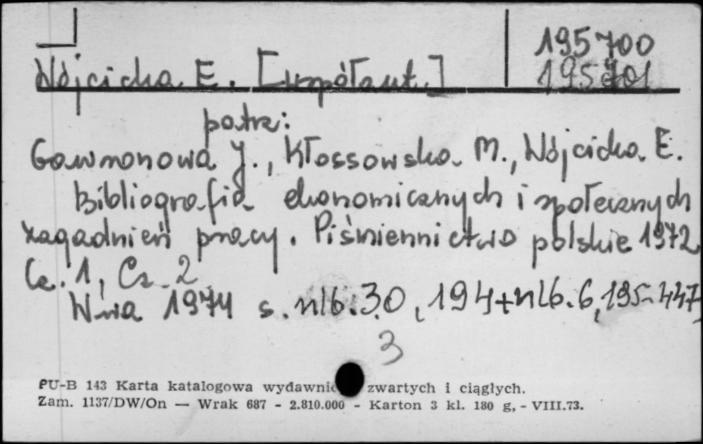 195700
Wójcicka E. [współaut.] 195701
patrz:
Gawronowa J., Kłossowska M., Wójcicka E.
Bibliografia ekonomicznych i społecznych
zagadnień pracy. Piśmiennictwo polskie 1972
Cz. 1, Cz. 2
W-wa 1974 s. nlb. 30, 194+nlb. 6, 195-447
3
PU-B 143 Karta katalogowa wydawnic zwartych i ciągłych.
Zam. 1137/DW/On — Wrak 687 - 2.810.000 - Karton 3 kl. 180 g, - VIII.73.